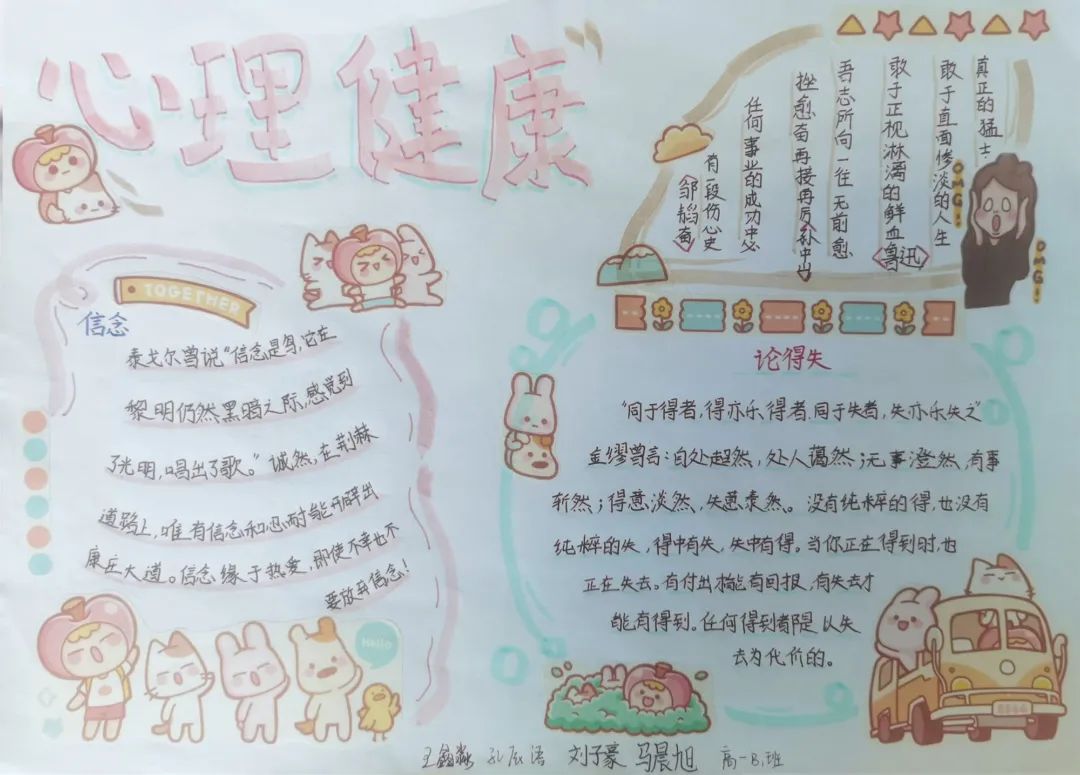 心理健康
真正的猛士
敢于直面惨淡的人生
敢于正视淋漓的鲜血
〈鲁迅〉
吾志所向一往无前愈
挫愈奋再接再厉〈孙中山〉
任何事业的成功中必
有段伤心史
〈邹韬奋〉
OMG!
OMG!
TOGETHER
信念
泰戈尔曾说“信念是鸟,它在
黎明仍然黑暗之际,感觉到
了光明,唱出了歌。”诚然,在荆棘
道路上,唯有信念和忍耐能开辟出
康庄大道。信念缘于热爱,即使不幸也不
要放弃信念!
HELLO
论得失
“同于得者,得亦乐得者,同于失者,失亦乐失之”
曾言:自处超然,处人蔼然;无事澄然,有事
斩然;得意淡然,失意泰然。没有纯粹的得,也没有
纯粹的失,得中有失,失中有得。当你正在得到时,也
正在失去。有付出才能有回报,有失去才
能有得到。任何得到都是以失
去为代价的。
王鑫淼 孔辰语 刘子豪 马晨旭 高一8.班